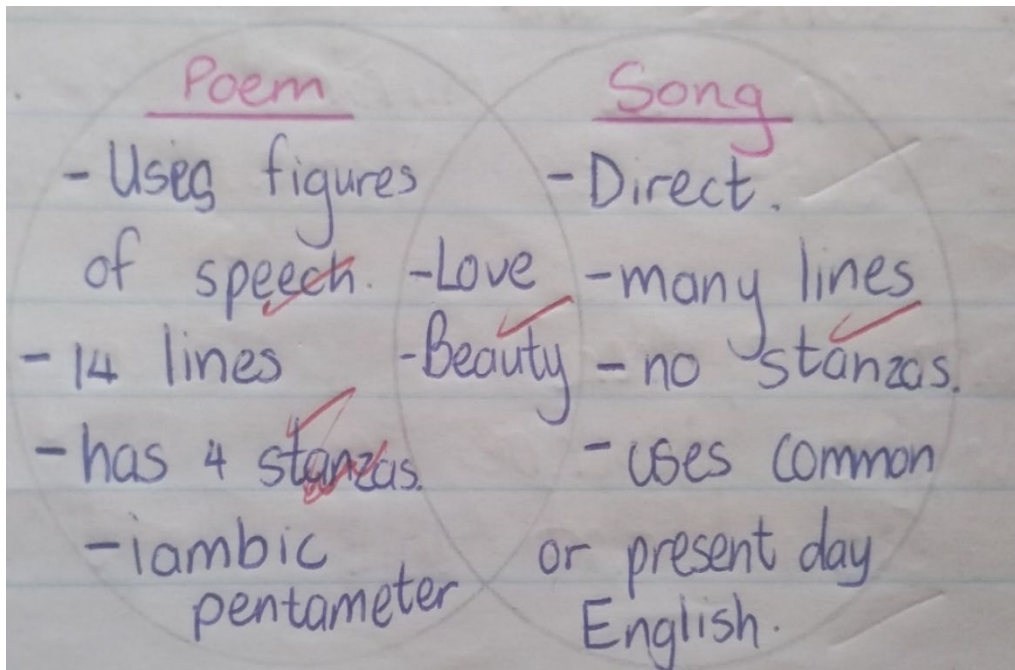 Poem
- Uses figures
of speech.
- 14 lines
- has 4 stanzas.
- iambic
pentameter
- Love
- Beauty
Song
- Direct.
- many lines
- no stanzas.
- uses common
or present day
English.